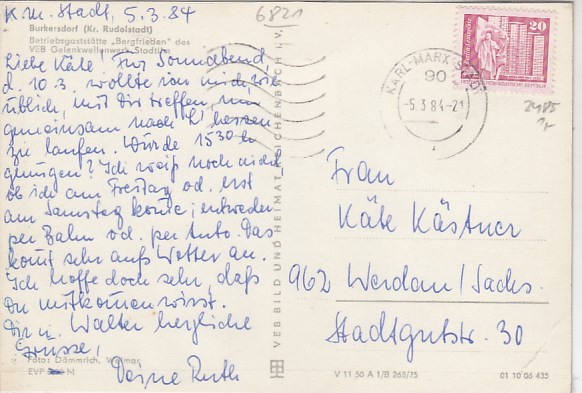 K.M. Stadt, 5.3.84
6821
Burkersdorf (Kr. Rudolstadt)
Betriebsgaststätte „Bergfrieden" des
VEB Gelenkwellenwerk Stadtilm
Liebe Käte! Für Sonnabend,
d. 10.3. wollte ich mich, wie
üblich, mit Dir treffen, um
gemeinsam nach L' hessen
zu laufen. Würde 15³⁰ h
genügen? Ich weiß noch nicht,
ob ich am Freitag od. erst
am Samstag komme; entweder
per Bahn od. per Auto. Das
kommt sehr aufs Wetter an.
Ich hoffe doch sehr, daß
Du mitkommen wirst.
Dir u. Walter herzliche
Grüsse!
Deine Ruth
Foto: Dämmrich, Weimar
EVP M
VEB BILD UND HEIMAT REICHENBACH I. V.
20
KARL-MARX-STADT
90
-5.3.84-21
2485
Frau
Käte Kästner
962 Werdau/Sachs.
Stadtgutstr. 30
V 11 50 A 1/B 268/75
01 10 06 435